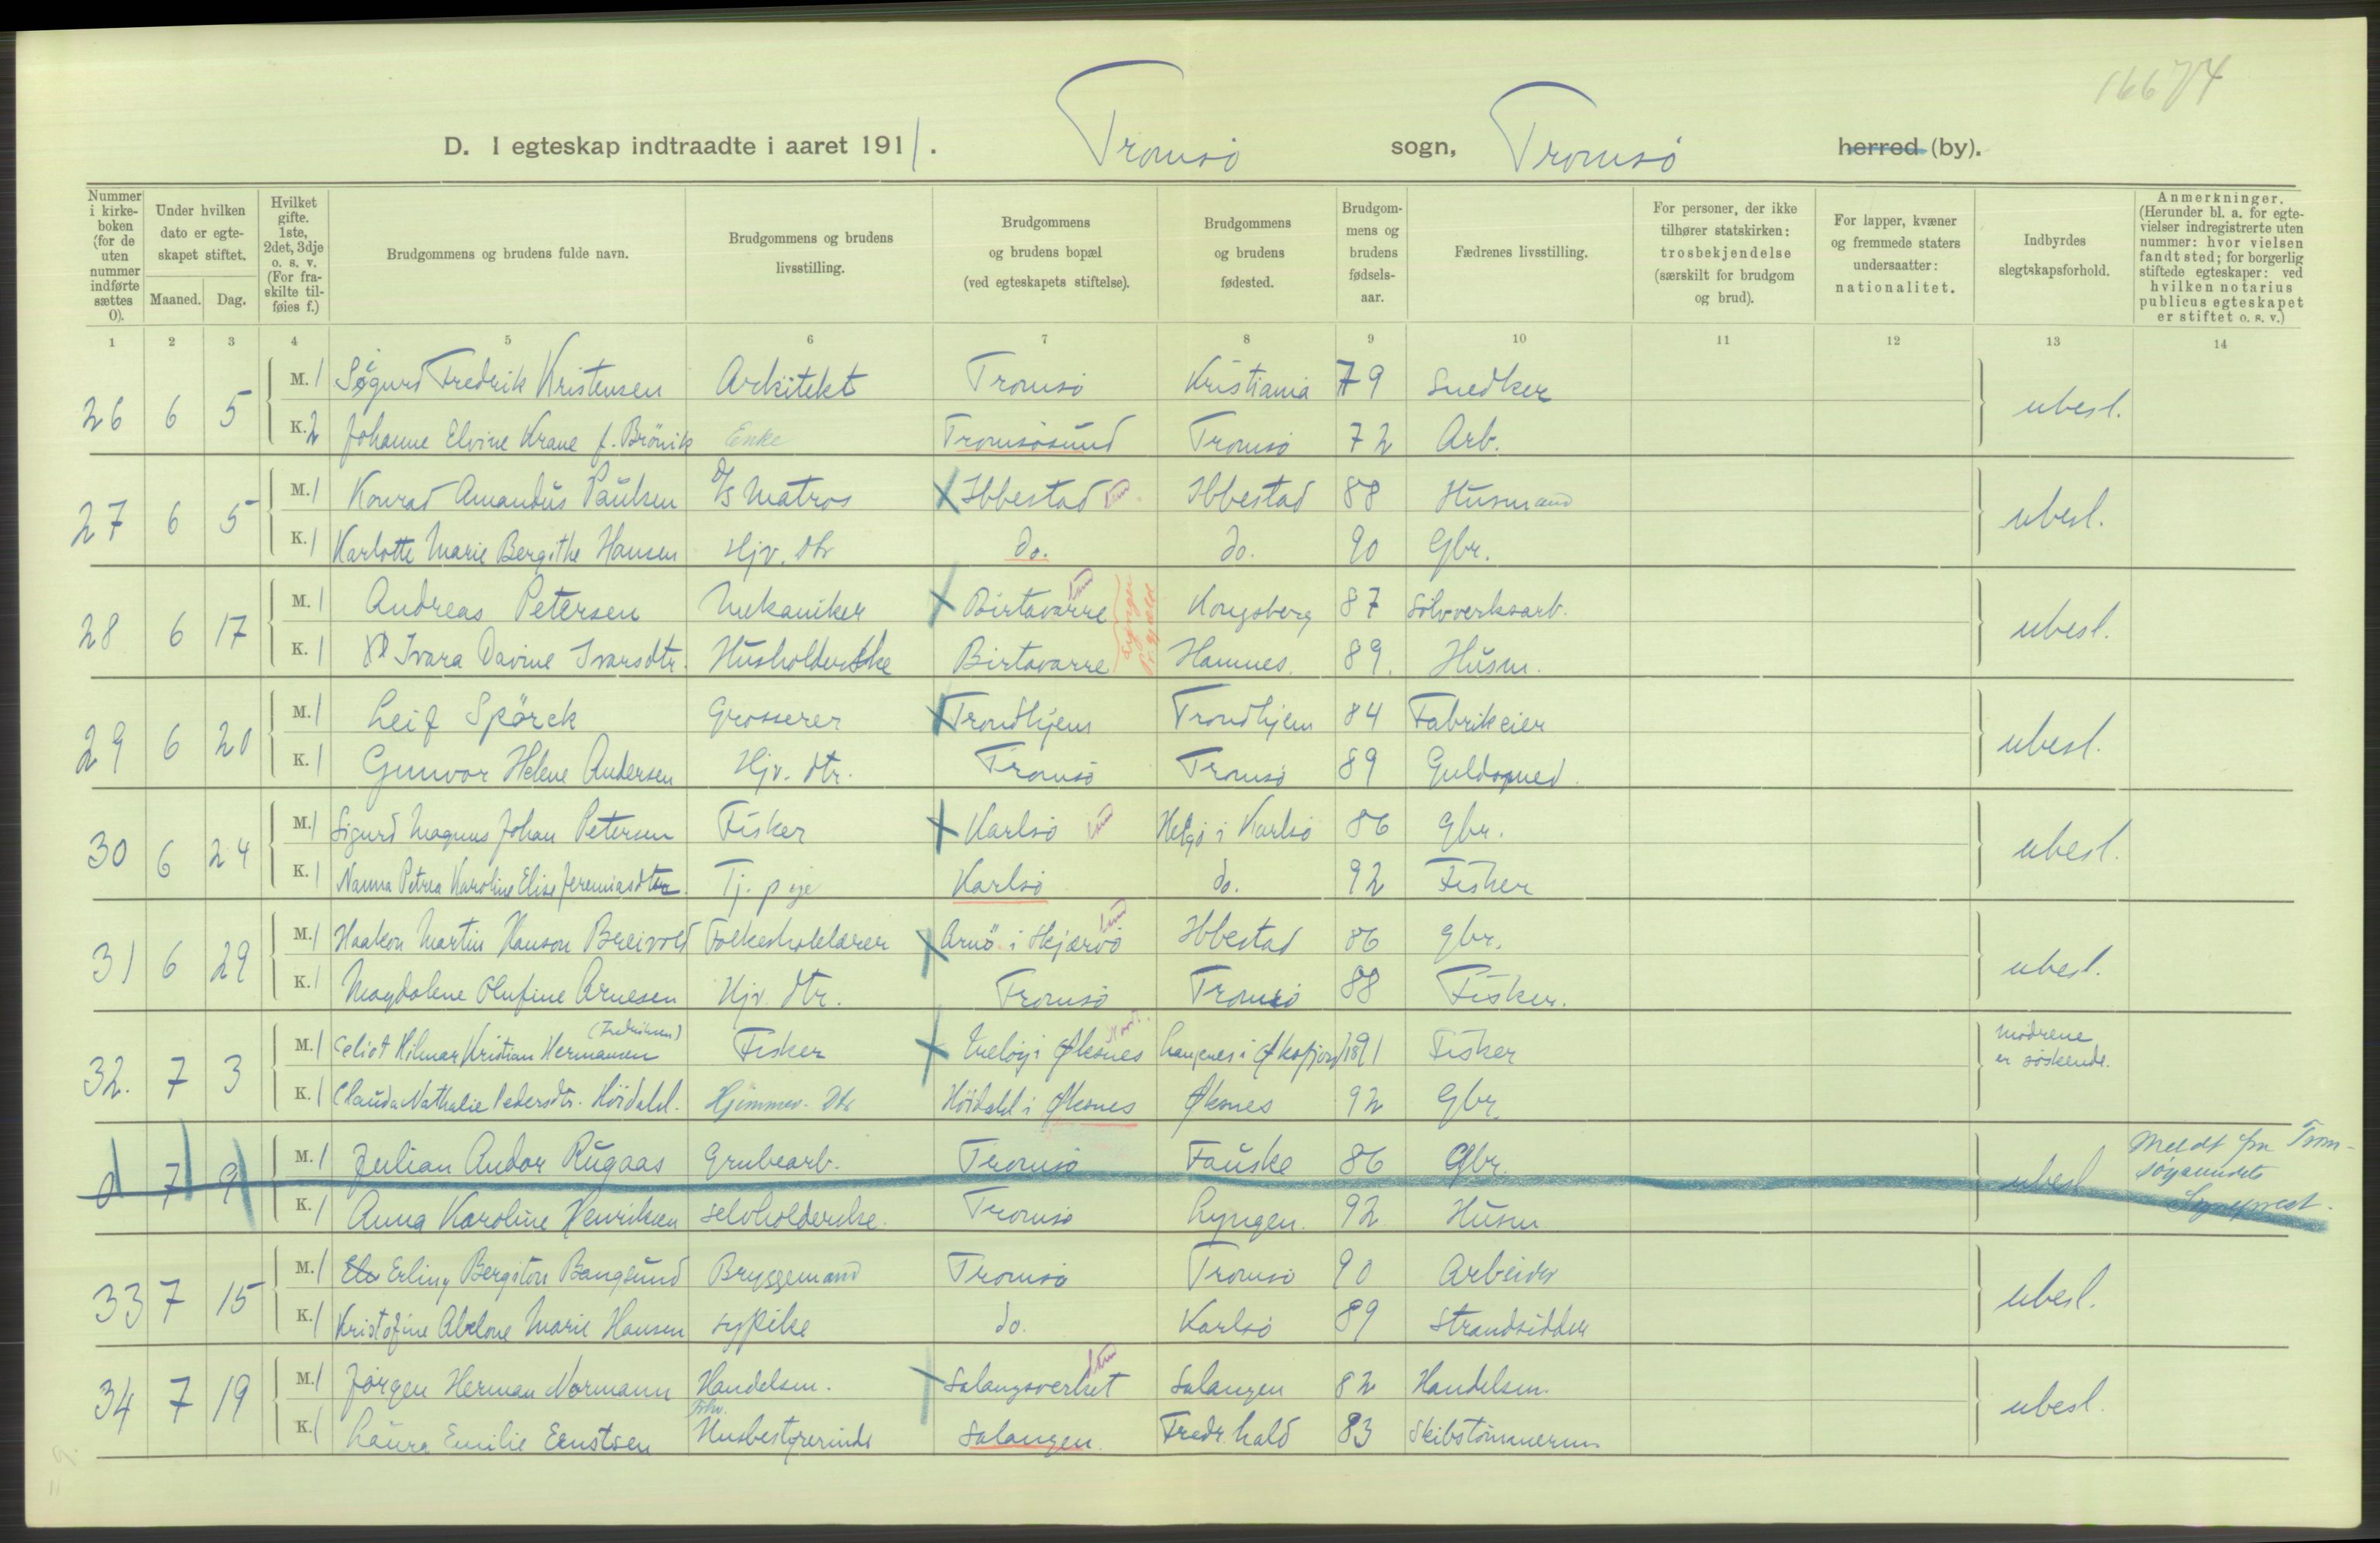 16674
D. I egteskap indtraadte i aaret 1911. Tromsö sogn, Tromsö herred (by).
Nummer i kirkeboken (for de uten nummer indførte sættes 0).
Under hvilken dato er egteskapet stiftet.
Maaned. Dag.
Hvilket gifte. 1ste, 2det, 3dje o. s. v. (For fraskilte tilføies f.)
Brudgommens og brudens fulde navn.
Brudgommens og brudens livsstilling.
Brudgommens og brudens bopæl (ved egteskapets stiftelse).
Brudgommens og brudens fødested.
Brudgommens og brudens fødselsaar.
Fædrenes livsstilling.
For personer, der ikke tilhører statskirken: trosbekjendelse (særskilt for brudgom og brud).
For lapper, kvæner og fremmede staters undersaatter: nationalitet.
Indbyrdes slegtskapsforhold.
Anmerkninger. (Herunder bl. a. for egtevielser indregistrerte uten nummer: hvor vielsen fandt sted; for borgerlig stiftede egteskaper: ved hvilken notarius publicus egteskapet er stiftet o. s. v.)
1 2 3 4 5 6 7 8 9 10 11 12 13 14
26 6 5 M. 1 Sigurd Fredrik Kristensen Arkitekt Tromsö Kristiania 79 Snedker ubesl.
K. 2 Johanne Elvine Krane f. Brönik Enke Tromsösund Tromsö 72 Arb.
27 6 5 M. 1 Konrad Amandus Paulsen D/S Matros Ibbestad Ibbestad 88 Husmand ubesl.
K. 1 Karlotte Marie Bergithe Hansen Hjv. dtr do. do. 90 Gbr.
28 6 17 M. 1 Andreas Petersen Mekaniker Birtavarre Kongsberg 87 Sölvverksarb. ubesl.
K. 1 Ivara Davine Ivarsdtr. Husholderske Birtavarre Hamnes. 89. Husm.
29 6 20 M. 1 Leif Spörck Grosserer Trondhjem Trondhjem 84 Fabrikeier ubesl.
K. 1 Gunvor Helene Andersen Hjv. dtr. Tromsö Tromsö 89 Guldsmed.
30 6 24 M. 1 Sigurd Magnus Johan Petersen Fisker Karlsö Helgö i Karlsö 86 Gbr. ubesl.
K. 1 Nanna Petrea Karoline Elise Jeremiasdtr. Tj. pige Karlsö do. 92 Fisker
31 6 29 M. 1 Haakon Martin Hanson Breivold Folkeskolelærer Arnö i Skjærvö Ibbestad 86 gbr. ubesl.
K. 1 Magdalene Olufine Arnesen Hjv. dtr. Tromsö Tromsö 88 Fisker.
32. 7 3 M. 1 Celiot Hilmar Kristian Hermansen Fisker i Øksnes i Øksfjord 1891 Fisker Mödrene
er söskende.
K. 1 Clauda Nathalie Pedersdtr. Höidahl. Hjemmev. Dtr Höidahl i Øksnes Øksnes 92 Gbr.
0 7 9 M. 1 Julian Andor Rugaas Grubearb. Tromsö Fauske 86 Gbr. ubesl. Meldt fra Trom-
K. 1 Anna Karoline Henriksen selvholderske. Tromsö Lyngen. 92 Husm
33 7 15 M. 1 Erling Bergiton Bangsund Bryggemand Tromsö Tromsö 90 Arbeider ubesl.
K. 1 Kristofine Abelone Marie Hansen sypike do. Karlsö 89 Strandsidder
34 7 19 M. 1 Jörgen Herman Normann Handelsm. Salangsverket Salangen 82 Handelsm. ubesl.
K. 1 Laura Emilie Ernstsen Husbestyrerinde Salangen. Fredr.hald 83 Skibstömmerm.